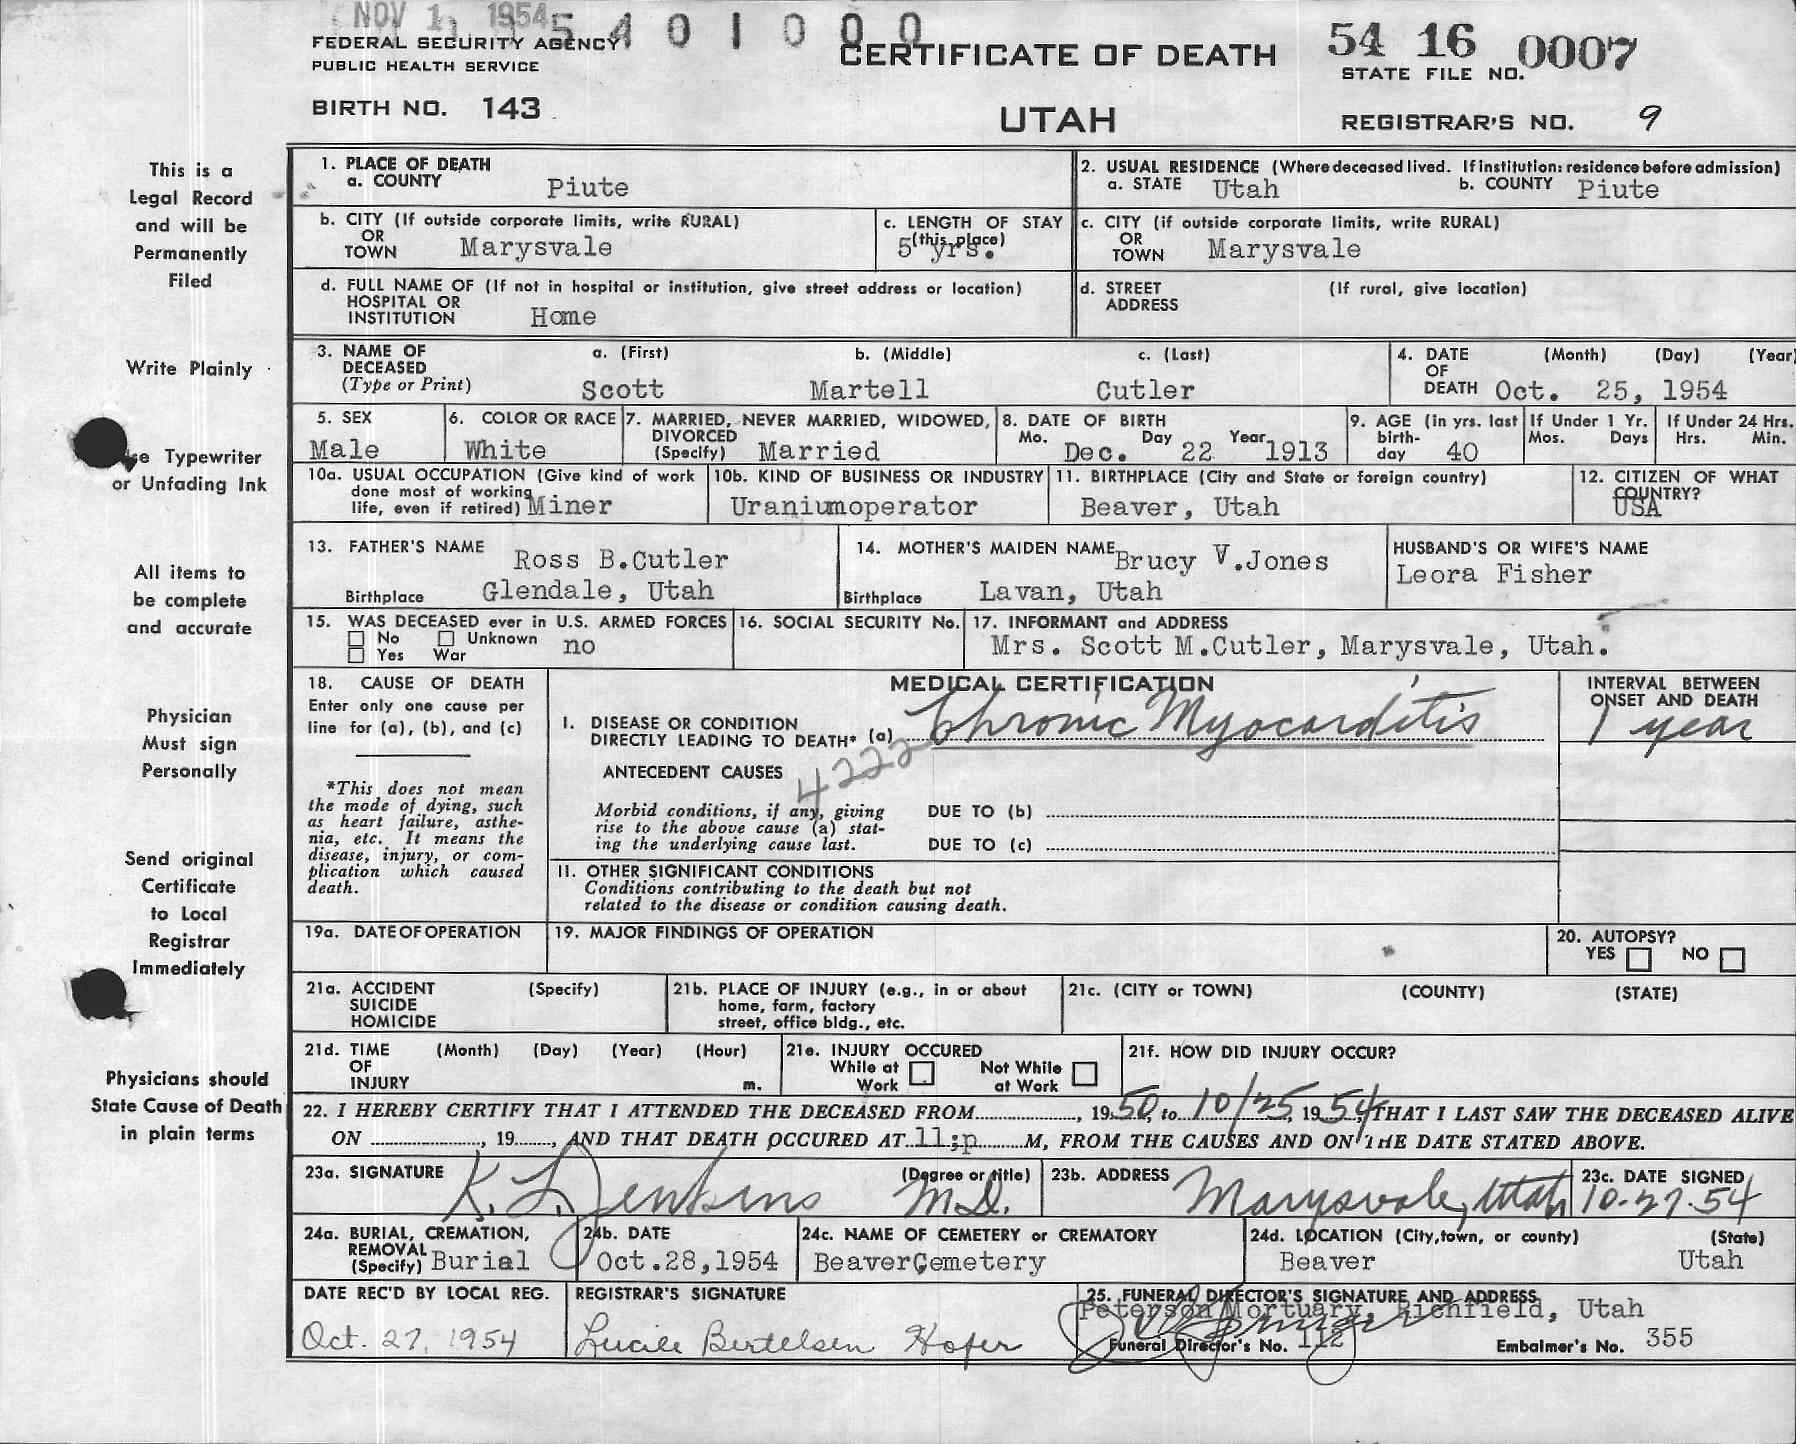 NOV 1, 1954 5 4 0 1 0 0 0
FEDERAL SECURITY AGENCY
PUBLIC HEALTH SERVICE
CERTIFICATE OF DEATH
54 16 0007
STATE FILE NO.
BIRTH NO. 143
UTAH
REGISTRAR'S NO. 9
This is a
Legal Record
and will be
Permanently
Filed
Write Plainly
Typewriter
or Unfading Ink
All items to
be complete
and accurate
Physician
Must sign
Personally
Send original
Certificate
to Local
Registrar
Immediately
Physicians should
State Cause of Death
in plain terms
1. PLACE OF DEATH
a. COUNTY Piute
2. USUAL RESIDENCE (Where deceased lived. If institution: residence before admission)
a. STATE Utah b. COUNTY Piute
b. CITY (If outside corporate limits, write RURAL)
OR
TOWN Marysvale
c. LENGTH OF STAY
(this place)
5 yrs.
c. CITY (if outside corporate limits, write RURAL)
OR
TOWN Marysvale
d. FULL NAME OF (If not in hospital or institution, give street address or location)
HOSPITAL OR
INSTITUTION Home
d. STREET (If rural, give location)
ADDRESS
3. NAME OF DECEASED (Type or Print)
a. (First) b. (Middle) c. (Last)
Scott Martell Cutler
4. DATE OF DEATH (Month) (Day) (Year)
Oct. 25, 1954
5. SEX
Male
6. COLOR OR RACE
White
7. MARRIED, NEVER MARRIED, WIDOWED,
DIVORCED
(Specify) Married
8. DATE OF BIRTH
Mo. Day Year
Dec. 22 1913
9. AGE (in yrs. last
birth-
day 40
If Under 1 Yr.
Mos. Days
If Under 24 Hrs.
Hrs. Min.
10a. USUAL OCCUPATION (Give kind of work
done most of working
life, even if retired) Miner
10b. KIND OF BUSINESS OR INDUSTRY
Uraniumoperator
11. BIRTHPLACE (City and State or foreign country)
Beaver, Utah
12. CITIZEN OF WHAT
COUNTRY?
USA
13. FATHER'S NAME Ross B.Cutler
Birthplace Glendale, Utah
14. MOTHER'S MAIDEN NAME Brucy V.Jones
Birthplace Lavan, Utah
HUSBAND'S OR WIFE'S NAME
Leora Fisher
15. WAS DECEASED ever in U.S. ARMED FORCES
No Unknown no
Yes War
16. SOCIAL SECURITY No.
17. INFORMANT and ADDRESS
Mrs. Scott M.Cutler, Marysvale, Utah.
18. CAUSE OF DEATH
Enter only one cause per
line for (a), (b), and (c)
*This does not mean
the mode of dying, such
as heart failure, asthe-
nia, etc. It means the
disease, injury, or com-
plication which caused
death.
MEDICAL CERTIFICATION
INTERVAL BETWEEN
ONSET AND DEATH
I. DISEASE OR CONDITION
DIRECTLY LEADING TO DEATH* (a) Chronic Myocarditis
1 year
4222
ANTECEDENT CAUSES
Morbid conditions, if any, giving
rise to the above cause (a) stat-
ing the underlying cause last.
DUE TO (b)
DUE TO (c)
II. OTHER SIGNIFICANT CONDITIONS
Conditions contributing to the death but not
related to the disease or condition causing death.
19a. DATE OF OPERATION
19. MAJOR FINDINGS OF OPERATION
20. AUTOPSY?
YES NO
21a. ACCIDENT (Specify)
SUICIDE
HOMICIDE
21b. PLACE OF INJURY (e.g., in or about
home, farm, factory
street, office bldg., etc.
21c. (CITY or TOWN) (COUNTY) (STATE)
21d. TIME (Month) (Day) (Year) (Hour)
OF
INJURY m.
21e. INJURY OCCURED
While at Work Not While at Work
21f. HOW DID INJURY OCCUR?
22. I HEREBY CERTIFY THAT I ATTENDED THE DECEASED FROM ............, 1950, to 10/25, 1954, THAT I LAST SAW THE DECEASED ALIVE
ON ............, 19......, AND THAT DEATH OCCURED AT 11;p M, FROM THE CAUSES AND ON THE DATE STATED ABOVE.
23a. SIGNATURE (Degree or title)
K. L. Jenkins M.D.
23b. ADDRESS
Marysvale, Utah
23c. DATE SIGNED
10-27-54
24a. BURIAL, CREMATION,
REMOVAL
(Specify) Burial
24b. DATE
Oct.28,1954
24c. NAME OF CEMETERY or CREMATORY
BeaverCemetery
24d. LOCATION (City, town, or county) (State)
Beaver Utah
DATE REC'D BY LOCAL REG.
Oct. 27, 1954
REGISTRAR'S SIGNATURE
Lucile Bertelsen Hofer
25. FUNERAL DIRECTOR'S SIGNATURE AND ADDRESS
Peterson Mortuary, Richfield, Utah
Funeral Director's No. 112
Embalmer's No. 355